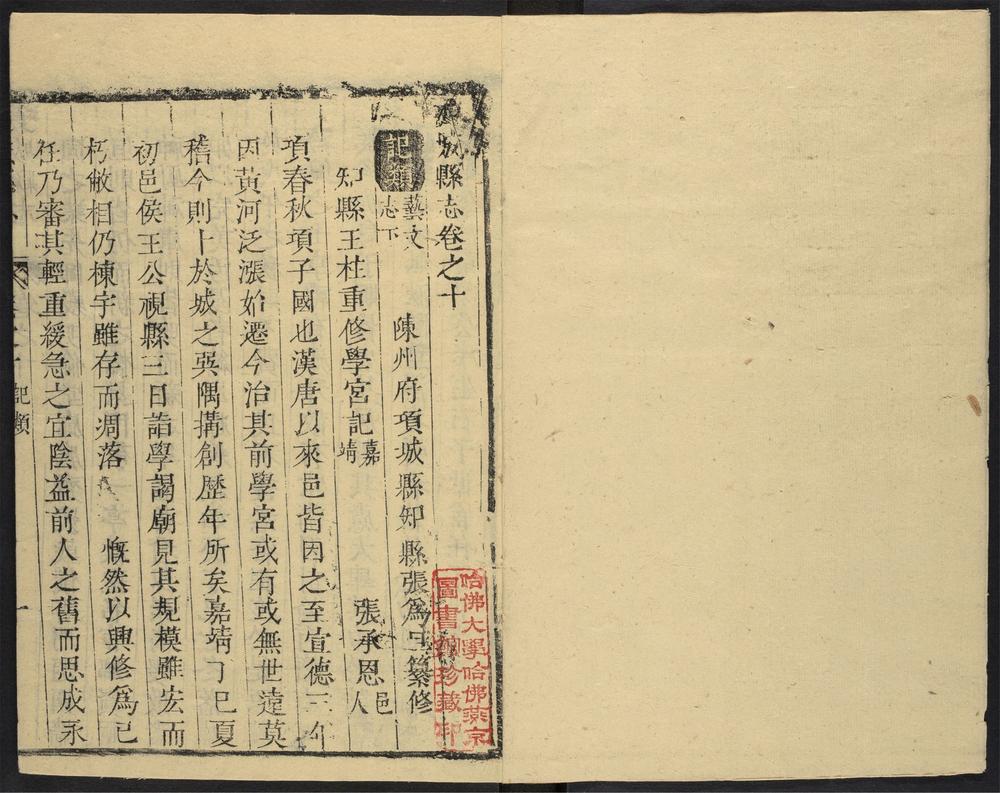 項城縣志卷之十
藝文
志下
陳州府項城縣知縣張為 纂修
知縣王柱重修學宮記
嘉
靖
張承恩
邑
人
項春秋項子國也漢唐以來邑皆因之至宣德三年
因黃河泛漲始遷今治其前學宮或有或無世遠莫
稽今則卜於城之巽隅搆創歷年所矣嘉靖丁巳夏
初邑侯王公視縣三日詣學謁廟見其規模雖宏而
朽敝相仍棟宇雖存而凋落 慨然以興修為己
任乃審其輕重緩急之宜陰益前人之舊而思成永
記類
一
哈佛大學哈佛燕京
圖書館珍藏印